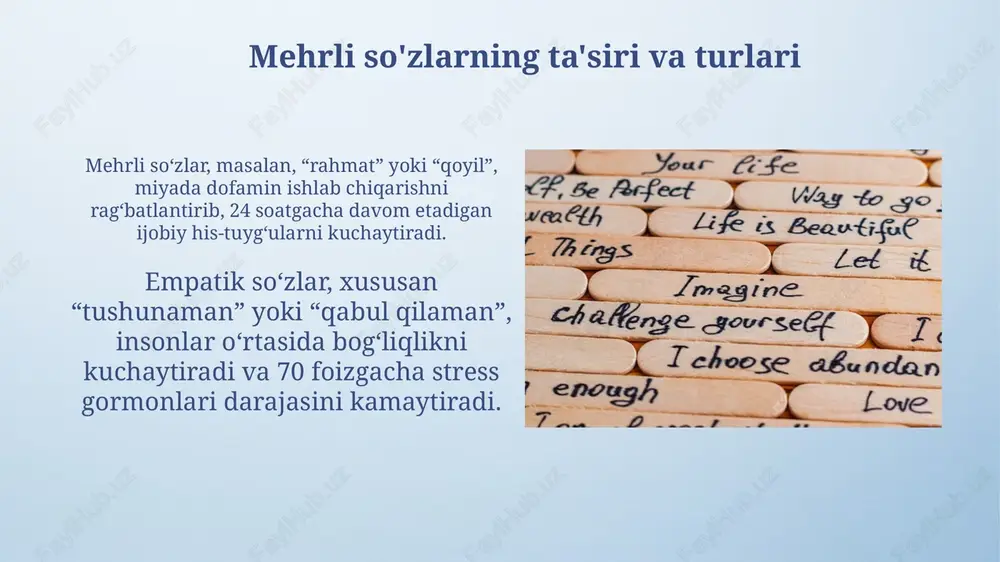 Mehrli so'zlarning ta'siri va turlari
Mehrli so‘zlar, masalan, “rahmat” yoki “qoyil”,
miyada dofamin ishlab chiqarishni
rag‘batlantirib, 24 soatgacha davom etadigan
ijobiy his-tuyg‘ularni kuchaytiradi.
Empatik so‘zlar, xususan
“tushunaman” yoki “qabul qilaman”,
insonlar o‘rtasida bog‘liqlikni
kuchaytiradi va 70 foizgacha stress
gormonlari darajasini kamaytiradi.
Your life
Be Perfect
Way to go
wealth
Life is Beautiful
Things
Let it
Imagine
challenge yourself
I
I choose abundan
enough
Love
FaylHub.uz
FaylHub.uz
FaylHub.uz
FaylHub.uz
FaylHub.uz
FaylHub.uz
FaylHub.uz
FaylHub.uz
FaylHub.uz
FaylHub.uz